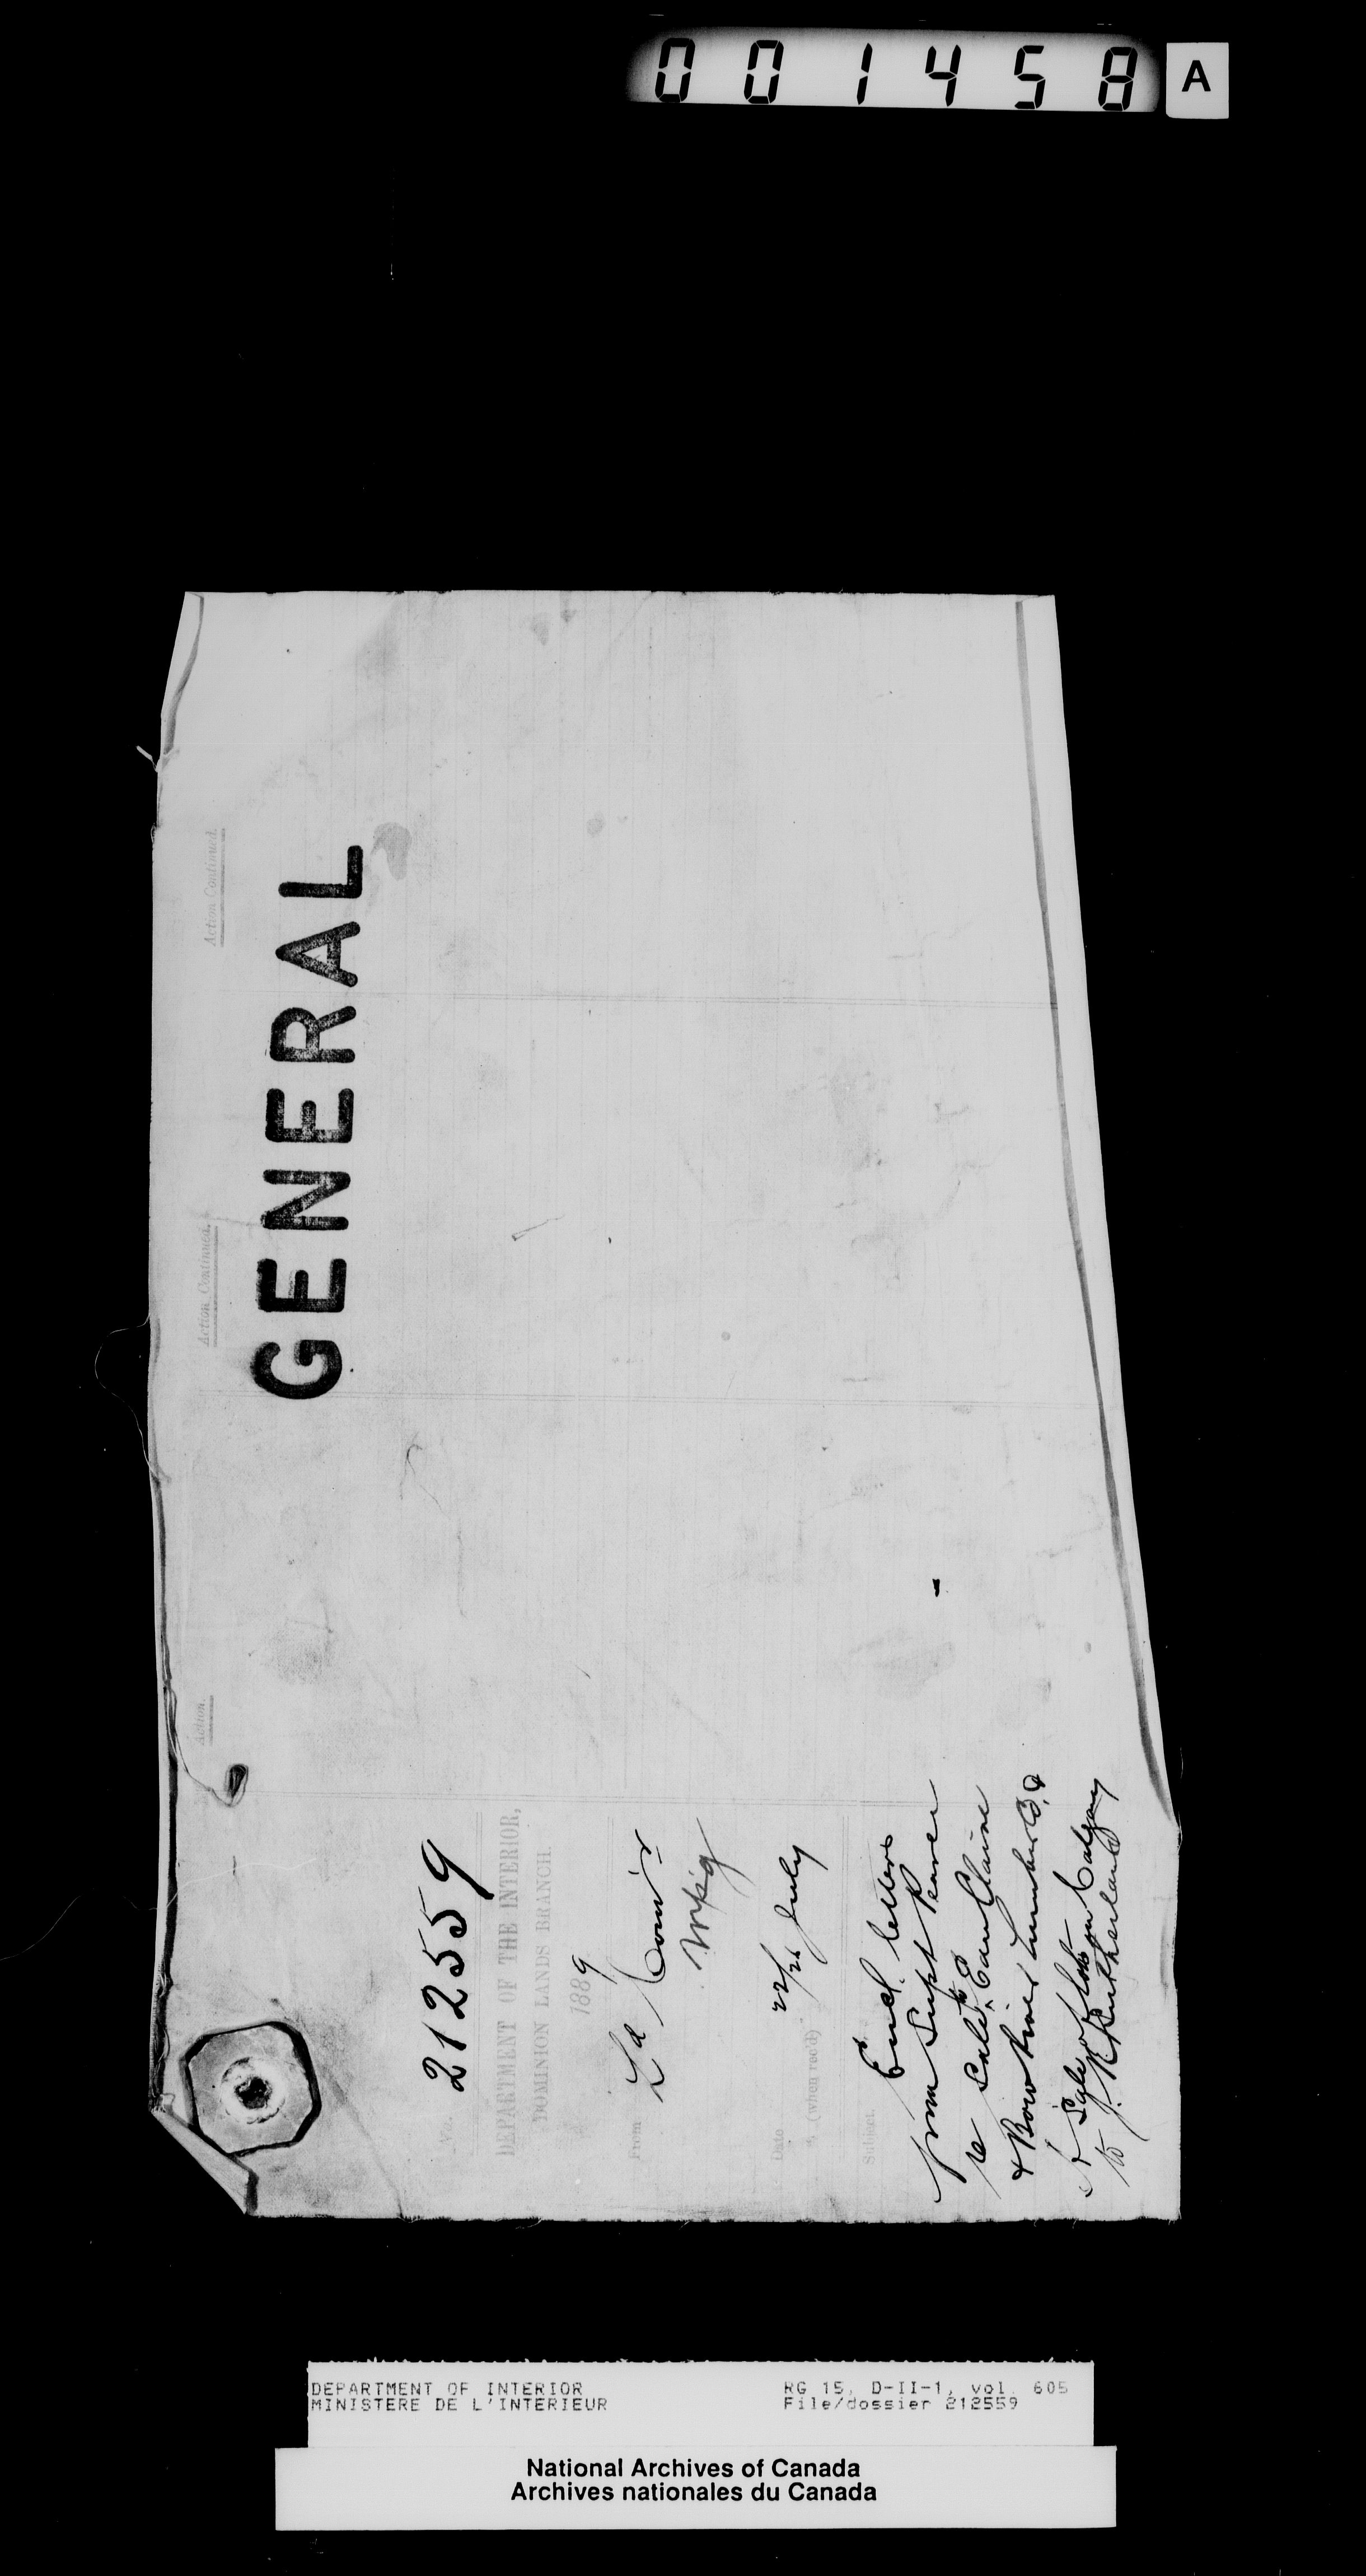 001458 A
Action Continued.
Action Continued.
Action.
GENERAL
No. 212559
DEPARTMENT OF THE INTERIOR,
DOMINION LANDS BRANCH.
1889
From Ld Com'r
Wpg
Date 22/26 July
(when rec'd)
Subject.
Encl. letters
from Supt Pearce
re Sale to Eau Claire
& Bow River Lumber Co. &
Sale of lots in Calgary
to J. R. Sutherland
DEPARTMENT OF INTERIOR RG 15, D-II-1, vol. 605
MINISTERE DE L'INTERIEUR File/dossier 212559
National Archives of Canada
Archives nationales du Canada